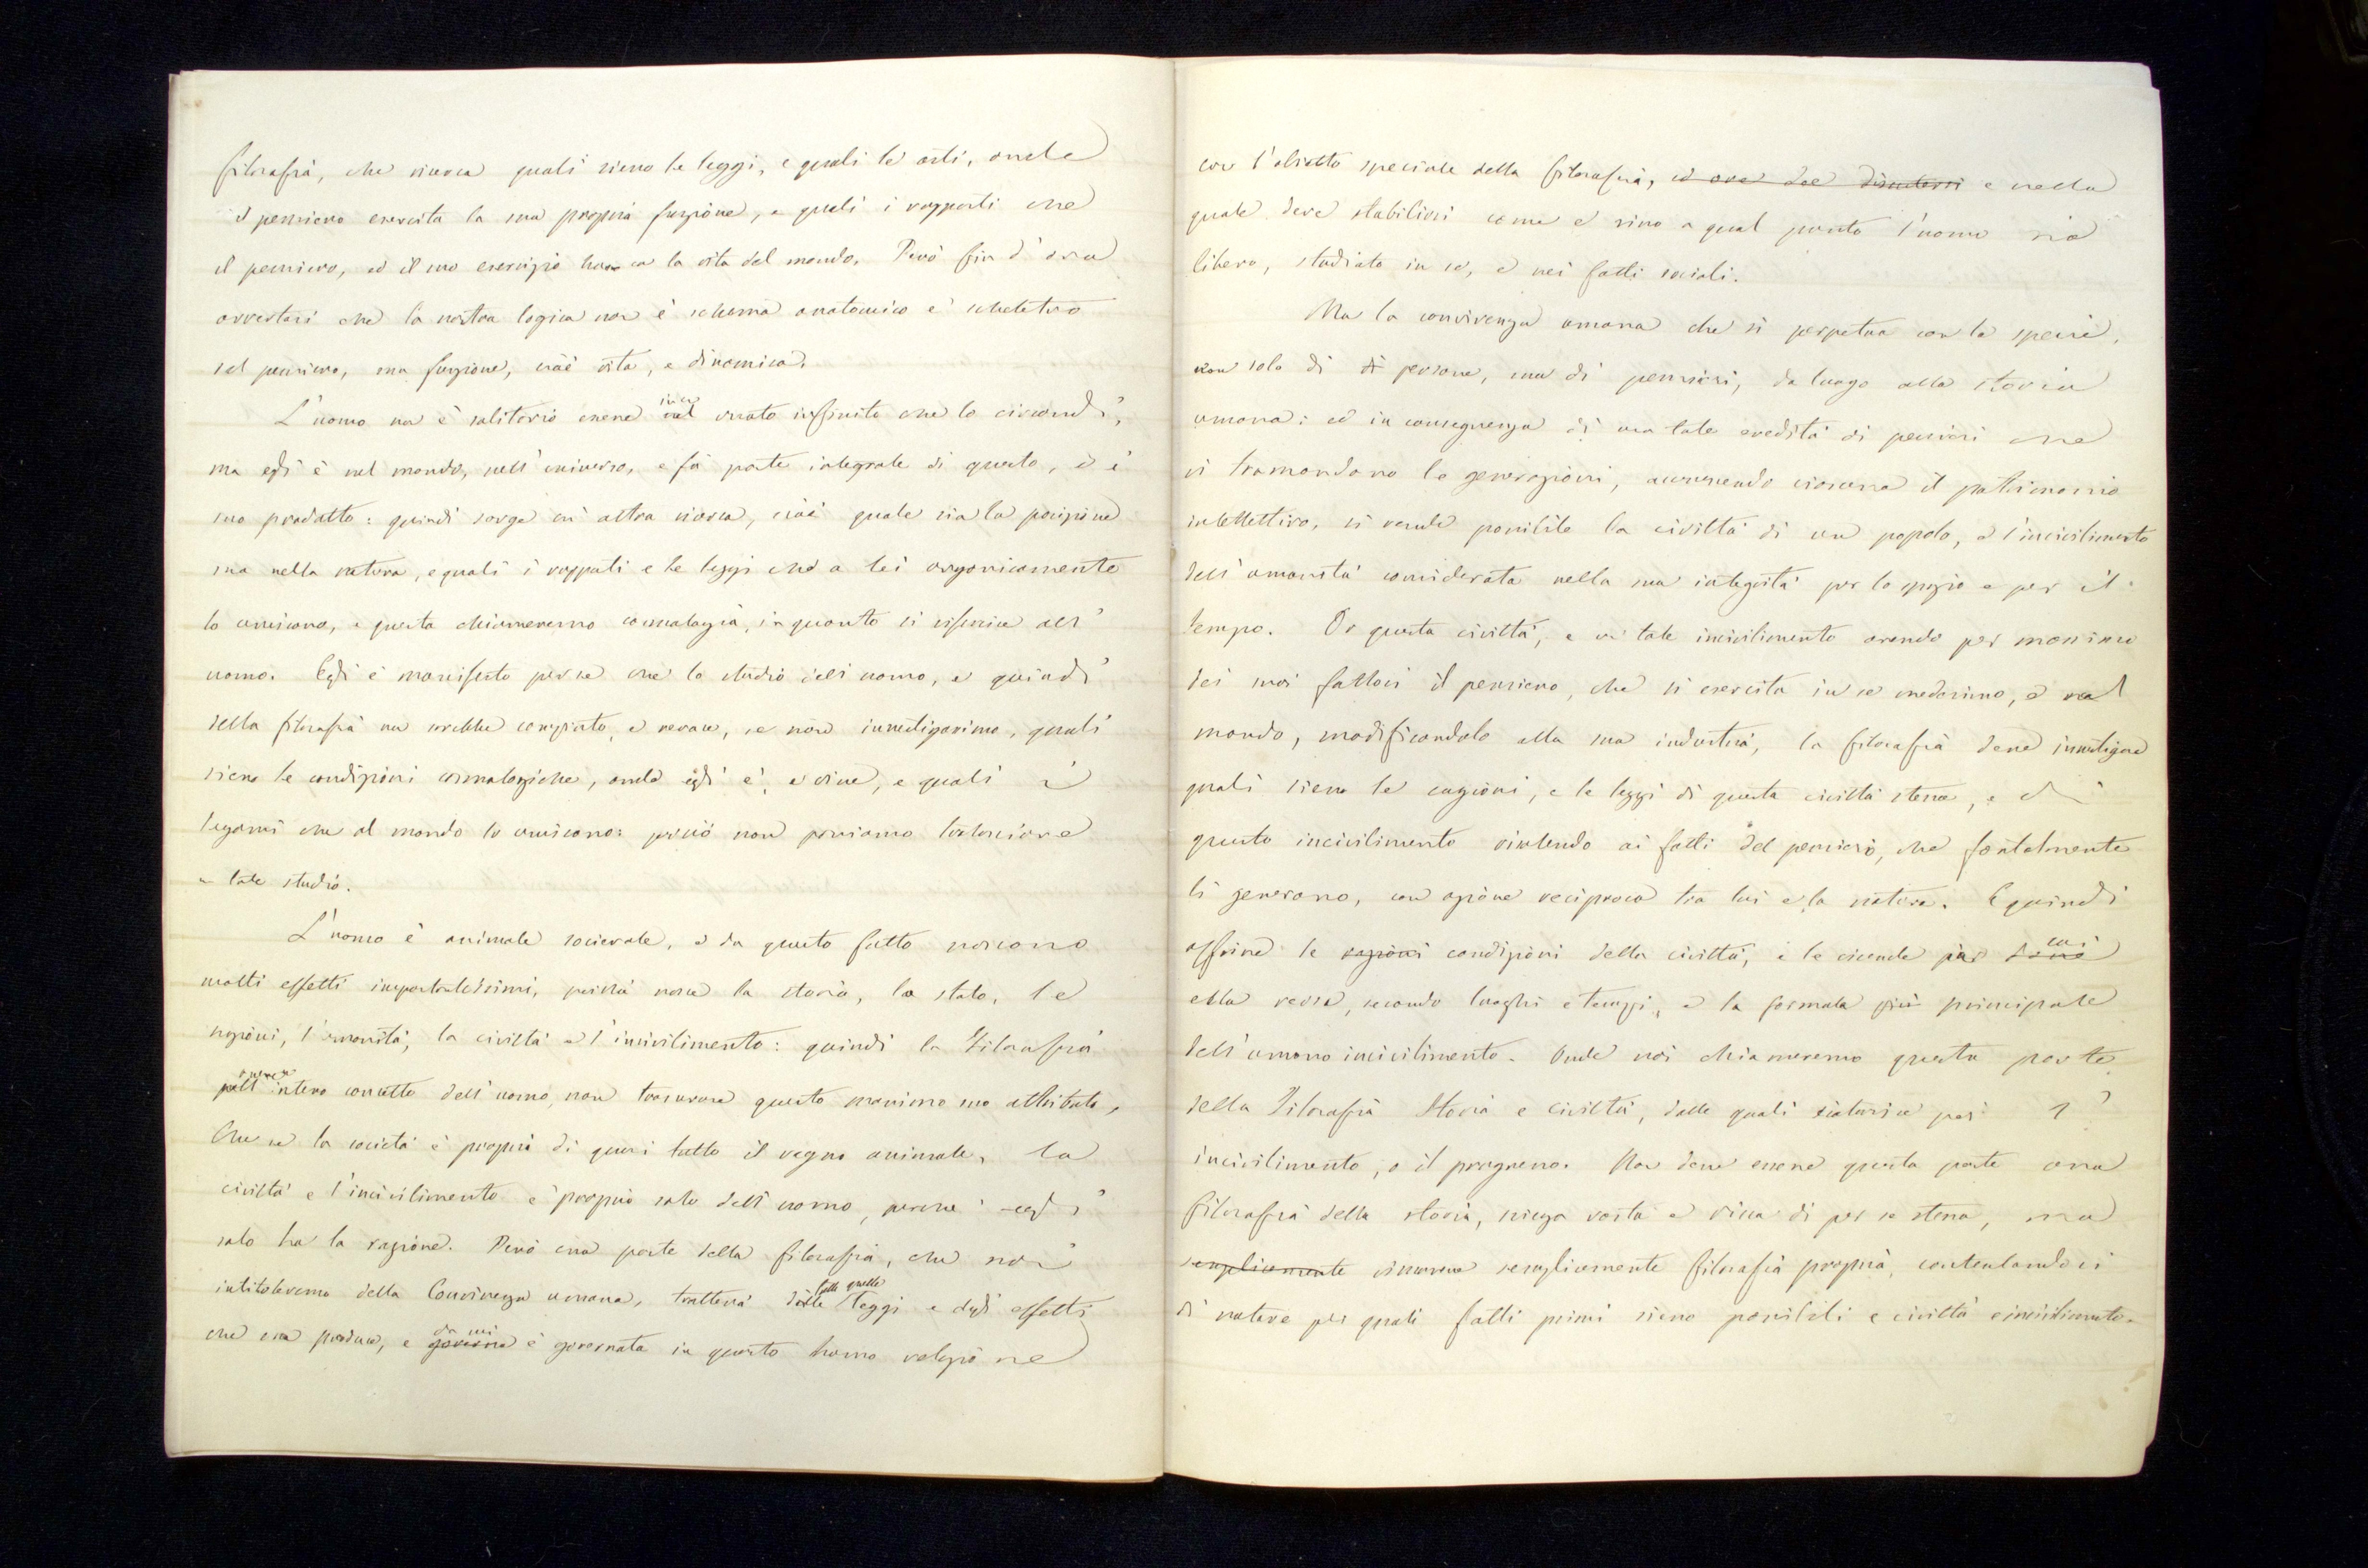 filosofia, che ricerca quali sieno le leggi, e quali le arti, onde
il pensiero esercita la sua propria funzione, e quali i rapporti che
il pensiero, ed il suo esercizio ha con la vita del mondo. Però fin d'ora
avvertasi che la nostra logica non è schema anatomico e scheletro
del pensiero, ma funzione, cioè vita, e dinamica.
L'uomo non è solitario essere nel vuoto infinito che lo circondi,
ma egli è nel mondo, nell'universo, e fa parte integrale di questo, ed è
suo prodotto: quindi sorge un'altra ricerca, cioè quale sia la posizione
sua nella natura, e quali i rapporti e le leggi che a lei organicamente
lo uniscono, e questa chiameremo cosmologia, in quanto si riferisce all'
uomo. Egli è manifesto per se che lo studio dell'uomo, e quindi
della filosofia non sarebbe compiuto, e verace, se non investigassimo, quali
sieno le condizioni cosmologiche, onde egli è, e vive, e quali i
legami che al mondo lo uniscono: perciò non possiamo tralasciare
tale studio.
L'uomo è animale socievole, e da questo fatto nascono
molti effetti importantissimi, poichè nasce la storia, lo stato, le
nazioni, l'umanità, la civiltà e l'incivilimento: quindi la Filosofia
intero concetto dell'uomo, non trascurare questo massimo suo attributo,
Che se la società è propria di quasi tutto il regno animale, la
civiltà e l'incivilimento è proprio solo dell'uomo, perchè egli
solo ha la ragione. Però una parte della filosofia, che noi
intitoleremo della Convivenza umana, tratterà delle tutte quelle leggi e degli effetti
che essa produce, e governa da cui è governata in quanto hanno relazione
con l'obietto speciale della filosofia, ed ove dee discutersi e nella
quale deve stabilirsi come e sino a qual punto l'uomo sia
libero, studiato in se, e nei fatti sociali.
Ma la convivenza umana che si perpetua con la specie,
non solo di di persone, ma di pensieri, da luogo alla storia
umana: ed in conseguenza di una tale eredità di pensieri che
si tramandano le generazioni, accrescendo ciascuna il patrimonio
intellettivo, si rende possibile la civiltà di un popolo, e l'incivilimento
dell'umanità considerata nella sua integrità per lo spazio e per il
tempo. Or questa civiltà, e un tale incivilimento avendo per massimo
dei suoi fattori il pensiero, che si esercita in se medesimo, e nel
mondo, modificandolo alla sua industria, la filosofia deve investigare
quali sieno le cagioni, e le leggi di questa civiltà stessa, e di
questo incivilimento risalendo ai fatti del pensiero, che fontalmente
li generano, con azione reciproca tra lui e la natura. E quindi
offrire le ragioni condizioni della civiltà, e le vicende per cui
ella versa, secondo luoghi e tempi, e la formula più principale
dell'umano incivilimento. Onde noi chiameremo questa parte
della Filosofia Storia e Civiltà, dalle quali risulta poi l'
incivilimento, o il progresso. Non deve essere questa parte una
filosofia della storia, scienza vasta e ricca di per se stessa, ma
semplicemente semplicemente filosofia propria, contentandoci
di notare per quali fatti primi sieno possibili e civiltà e incivilimento.